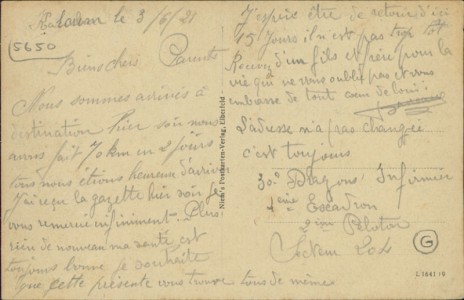 le 3/6/21
5650
Bien chers Parents
Nous sommes arrivés à
destination hier soir nous
avons fait 70 km en 2 jours
tous nous étions heureux d'arriver
J'ai reçu la gazette hier soir je
vous remercie infiniment. Plus
rien de nouveau ma santé est
toujours bonne je souhaite
que cette présente vous trouve tous de même
J'espère être de retour d'ici
15 jours il n'est pas trop tôt
Recevez d'un fils et frère pour la
vie qui ne vous oublie pas et vous
embrasse de tout cœur de loin
L'adresse n'a pas changée
c'est toujours
30e Dragons Infirmier
4ème Escadron
2ème Peloton
Secteur 204
G
Niem's Postkarten-Verlag, Elberfeld
L 1641/9